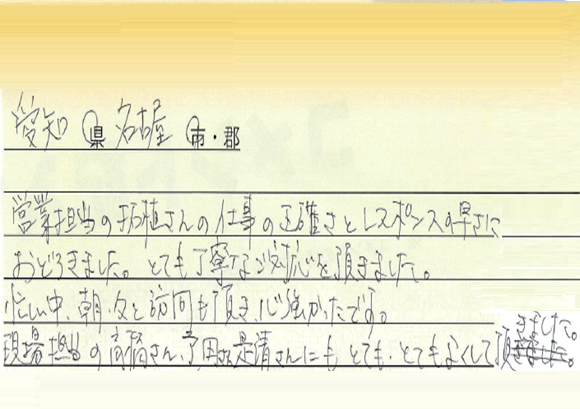 愛知 県 名古屋 市・郡
営業担当の柘植さんの仕事の正確さとレスポンスの早さに
おどろきました。とても丁寧なご対応を頂きました。
忙しい中、朝・夕と訪問も頂き、心強かったです。
現場担当の高橋さん、是清さんにも、とても・とてもよくして頂きました。